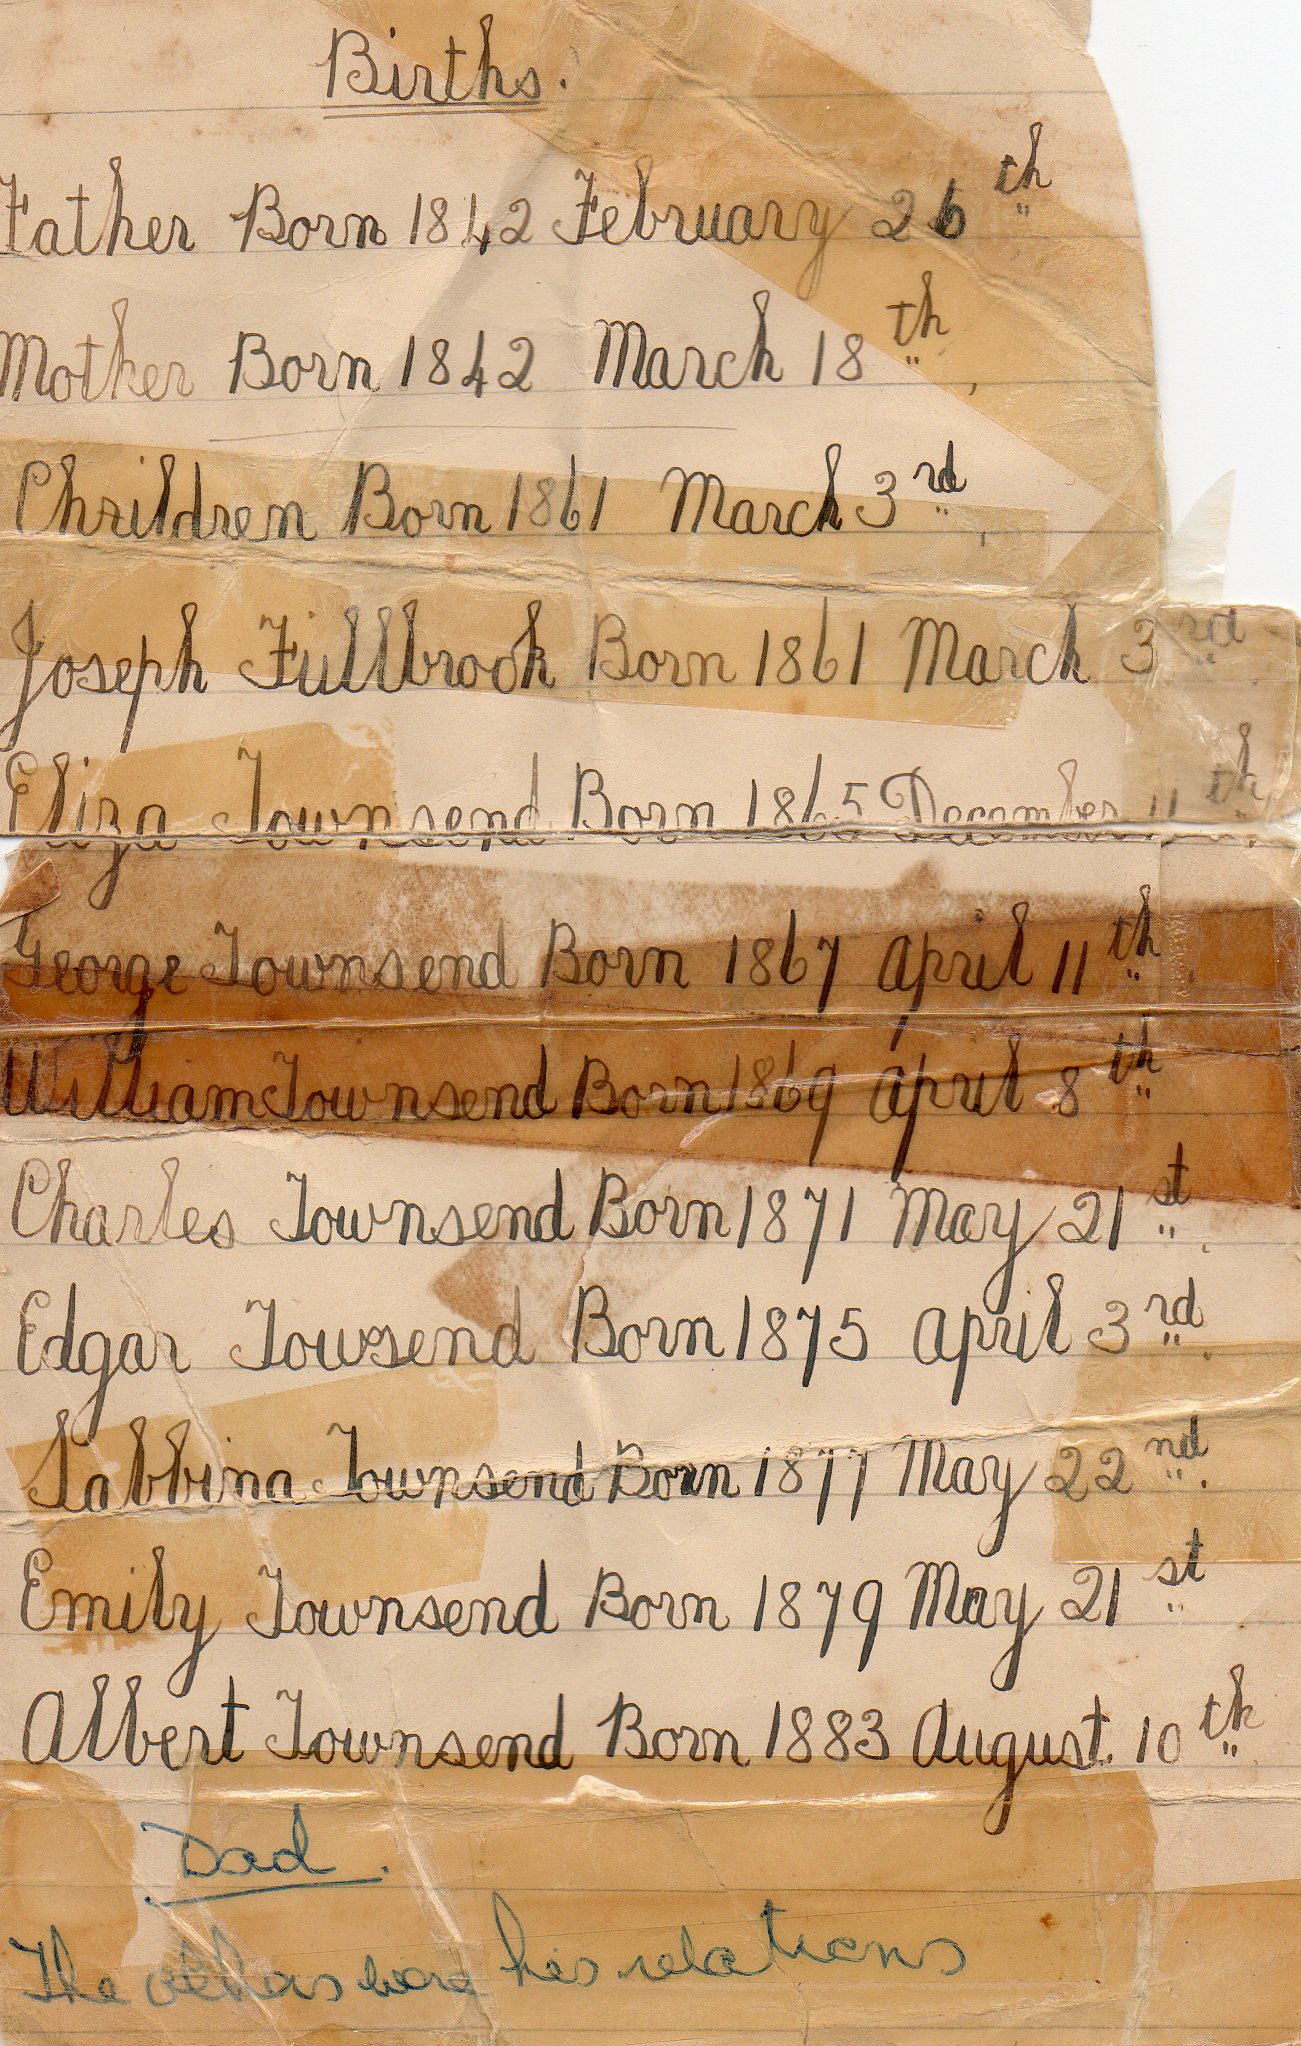 Births.
Father Born 1842 February 26th
Mother Born 1842 March 18th
Chrildren Born 1861 March 3rd
Joseph Fullbrook Born 1861 March 3rd
Eliza Townsend Born 1865 December 11th
George Townsend Born 1867 April 11th
William Townsend Born 1869 April 8th
Charles Townsend Born 1871 May 21st
Edgar Towsend Born 1875 April 3rd
Sabbina Townsend Born 1877 May 22nd
Emily Townsend Born 1879 May 21st
Albert Townsend Born 1883 August. 10th
Dad.
The others were his relations